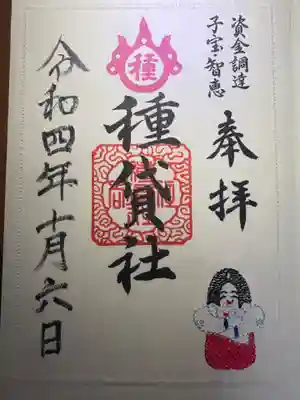 資金調達
子宝・智恵
奉拝
種
種貸社
令和四年十月六日